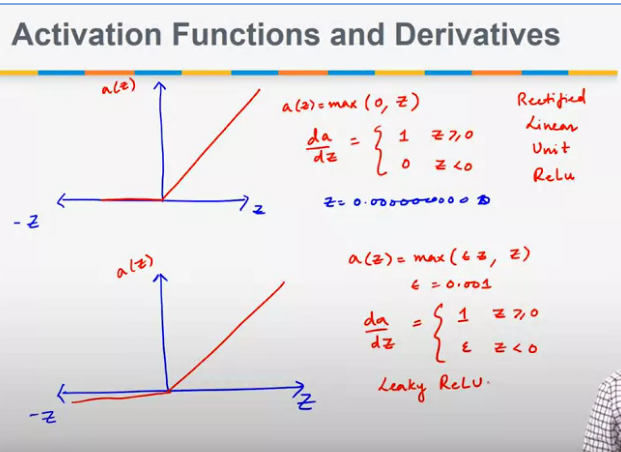 Activation Functions and Derivatives
a(z)
a(z) = max (0, z)
da/dz = { 1 z ≥ 0
0 z < 0
Rectified
Linear
Unit
ReLu
z
- z
a(z)
a(z) = max (ϵ z, z)
ϵ = 0.001
da/dz = { 1 z ≥ 0
ε z < 0
Leaky ReLU.
z
-z